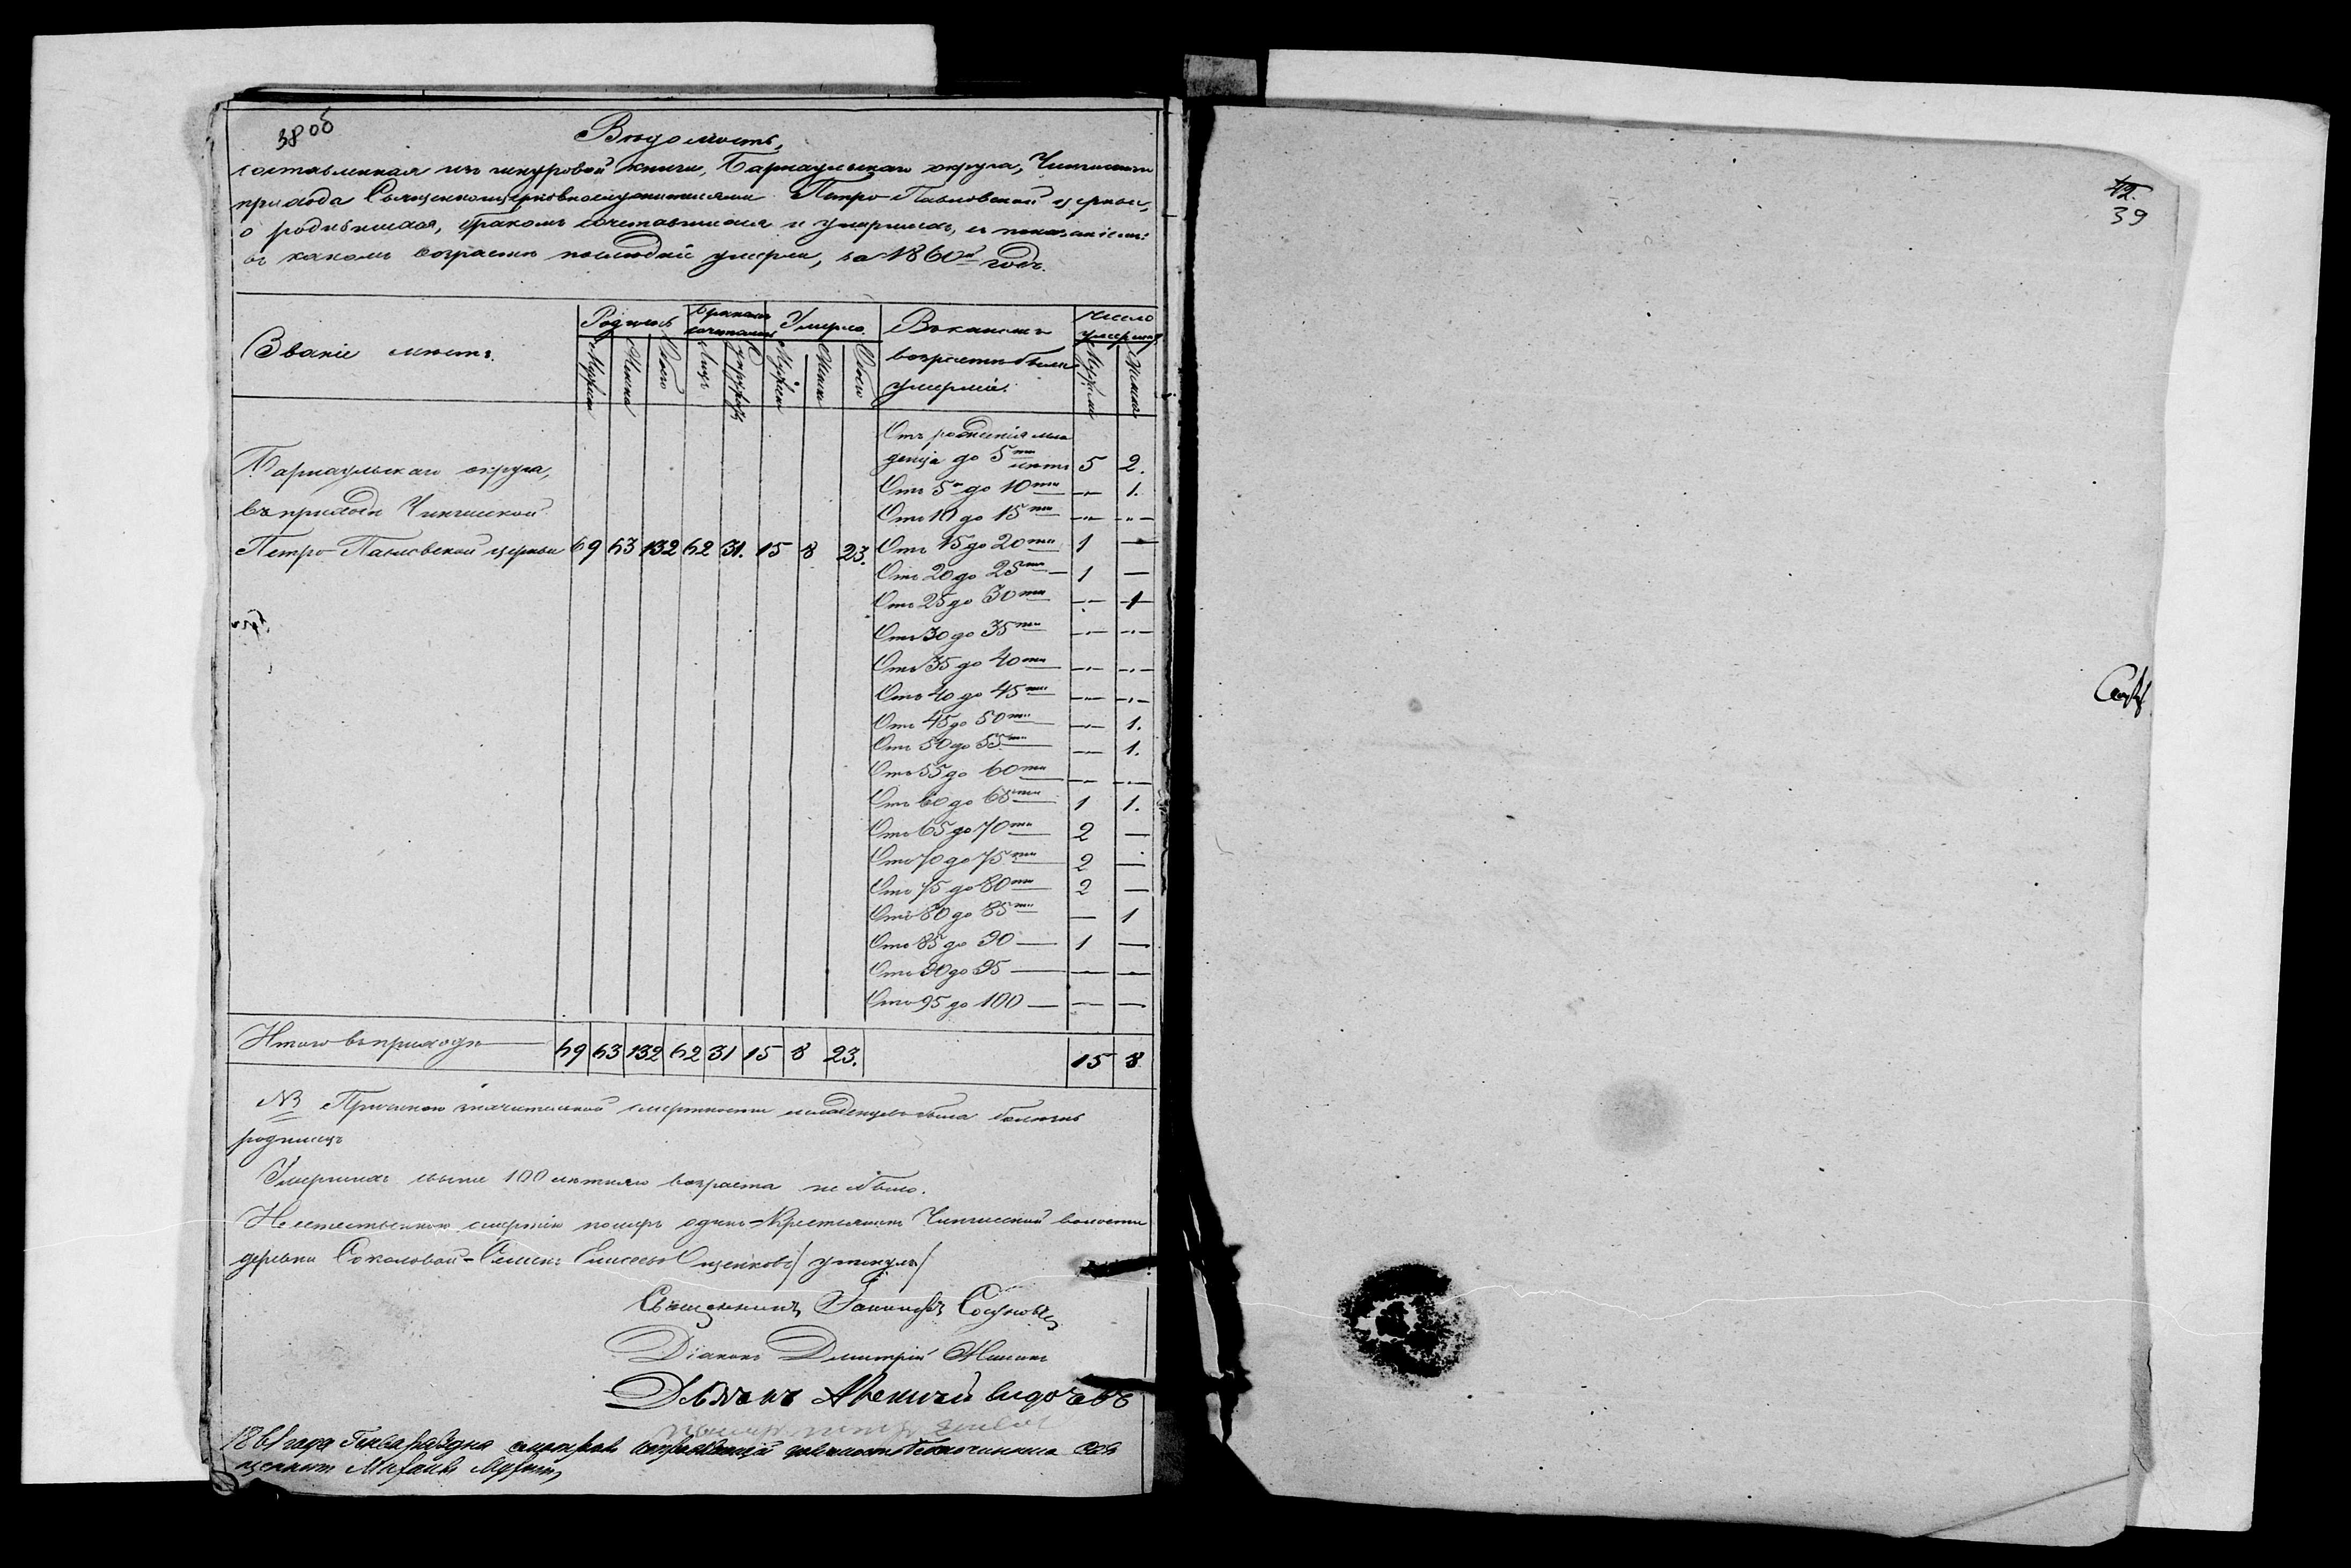 38об
Вѣдомость,
составленная изъ шнуровой книги, Барнаульскаго округа, Чингискаго
прихода Священноцерковнослужителями Петро-Павловской церкви,
о родившихся, бракомъ сочетавшихся и умершихъ, съ показаніемъ:
въ какомъ возрастѣ послѣдніе умерли, за 1860й годъ.
Званіе мѣстъ.
Родилось
Бракомъ сочеталось
Умерло.
Въ какомъ возрастѣ были умершіе.
Число умершихъ
Мужеск Женска Обоего Лицъ Супруж Мужеск Женск Обоего Мужеска Женска
Отъ рожденія мла
денца до 5ти лѣтъ 5 2.
Отъ 5и до 10ти -„- 1.
Отъ 10 до 15ти -„- -„-
Барнаульскаго округа,
въ приходѣ Чингиской
Петро-Павловской церкви 69 63 132 62 31. 15 8 23.
Отъ 15 до 20ти 1 —
Отъ 20 до 25ти 1 —
Отъ 25 до 30ти -„- 1
Отъ 30 до 35ти -„- -„-
Отъ 35 до 40ти -„- -„-
Отъ 40 до 45ти -„- -„-
Отъ 45 до 50ти -„- 1.
Отъ 50 до 55ти -„- 1.
Отъ 55 до 60ти -„- -„-
Отъ 60 до 65ти 1 1.
Отъ 65 до 70ти 2 —
Отъ 70 до 75ти 2 —
Отъ 75 до 80ти 2 —
Отъ 80 до 85ти — 1
Отъ 85 до 90 — 1 —
Отъ 90 до 95 — — —
Отъ 95 до 100 — — —
Итого въ приходѣ 69 63 132 62 31 15 8 23. 15 8
NB Причиною значительной смертности младенцевъ была болѣзнь
родимецъ
Умершихъ свыше 100 лѣтняго возраста не было.
Неестественною смертію померъ одинъ-Крестьянинъ Чингиской волости
деревни Соколовой-Семенъ Елисеевъ /утонулъ/
Священникъ Сосуновъ
Діаконъ Дмитрій
Дьячекъ
1861 года Генваря дня смотрѣлъ исправляющій должность благочиннаго Свя
щенникъ Михаилъ
42.
39